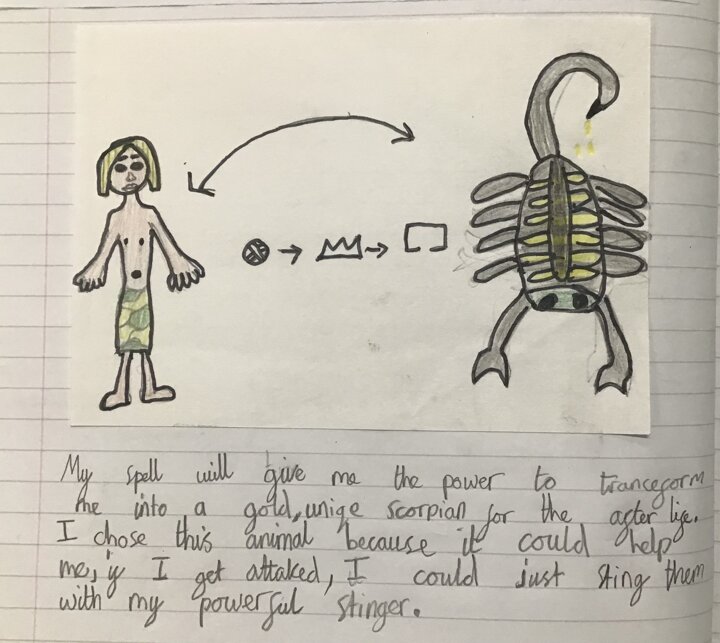 My spell will give me the power to tranceform
me into a gold, uniqe scorpian for the after life.
I chose this animal because it could help
me, if I get attaked, I could just sting them
with my powerful stinger.